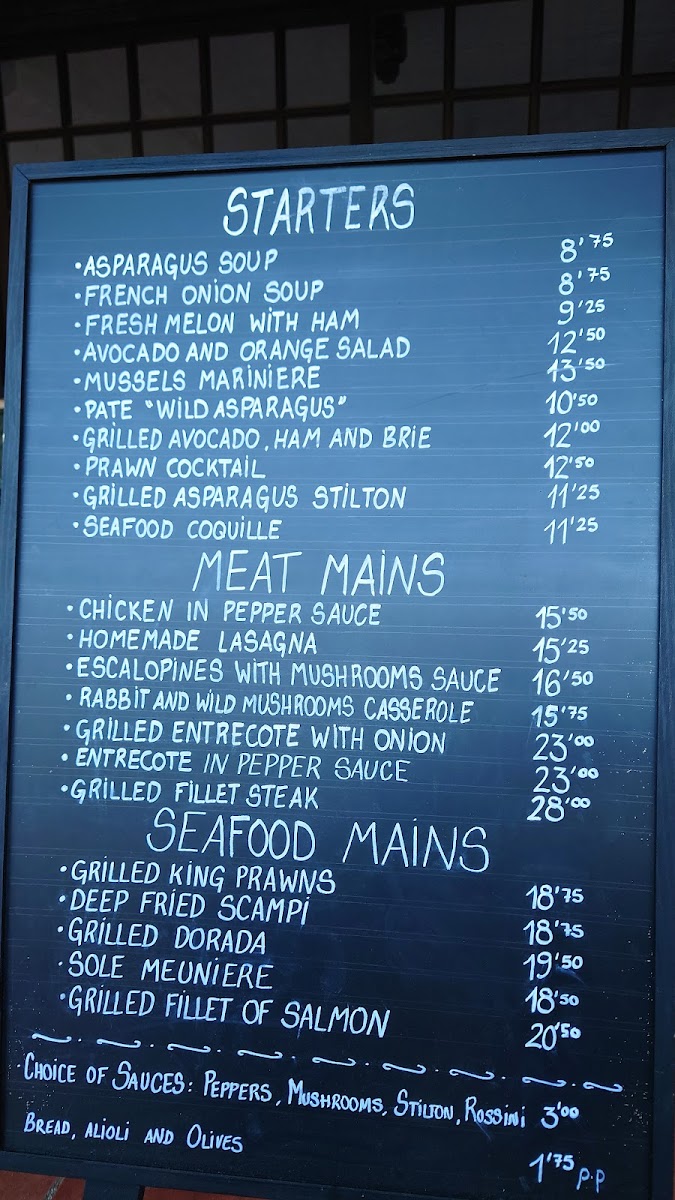 STARTERS
·ASPARAGUS SOUP 8'75
·FRENCH ONION SOUP 8'75
·FRESH MELON WITH HAM 9'25
·AVOCADO AND ORANGE SALAD 12'50
·MUSSELS MARINIERE 13'50
·PATE "WILD ASPARAGUS" 10'50
·GRILLED AVOCADO, HAM AND BRIE 12'00
·PRAWN COCKTAIL 12'50
·GRILLED ASPARAGUS STILTON 11'25
·SEAFOOD COQUILLE 11'25
MEAT MAINS
·CHICKEN IN PEPPER SAUCE 15'50
·HOMEMADE LASAGNA 15'25
·ESCALOPINES WITH MUSHROOMS SAUCE 16'50
·RABBIT AND WILD MUSHROOMS CASSEROLE 15'75
·GRILLED ENTRECOTE WITH ONION 23'00
·ENTRECOTE IN PEPPER SAUCE 23'00
·GRILLED FILLET STEAK 28'00
SEAFOOD MAINS
·GRILLED KING PRAWNS 18'75
·DEEP FRIED SCAMPI 18'75
·GRILLED DORADA 19'50
·SOLE MEUNIERE 18'50
·GRILLED FILLET OF SALMON 20'50
CHOICE OF SAUCES: PEPPERS, MUSHROOMS, STILTON, ROSSINI 3'00
BREAD, ALIOLI AND OLIVES 1'75 p.p